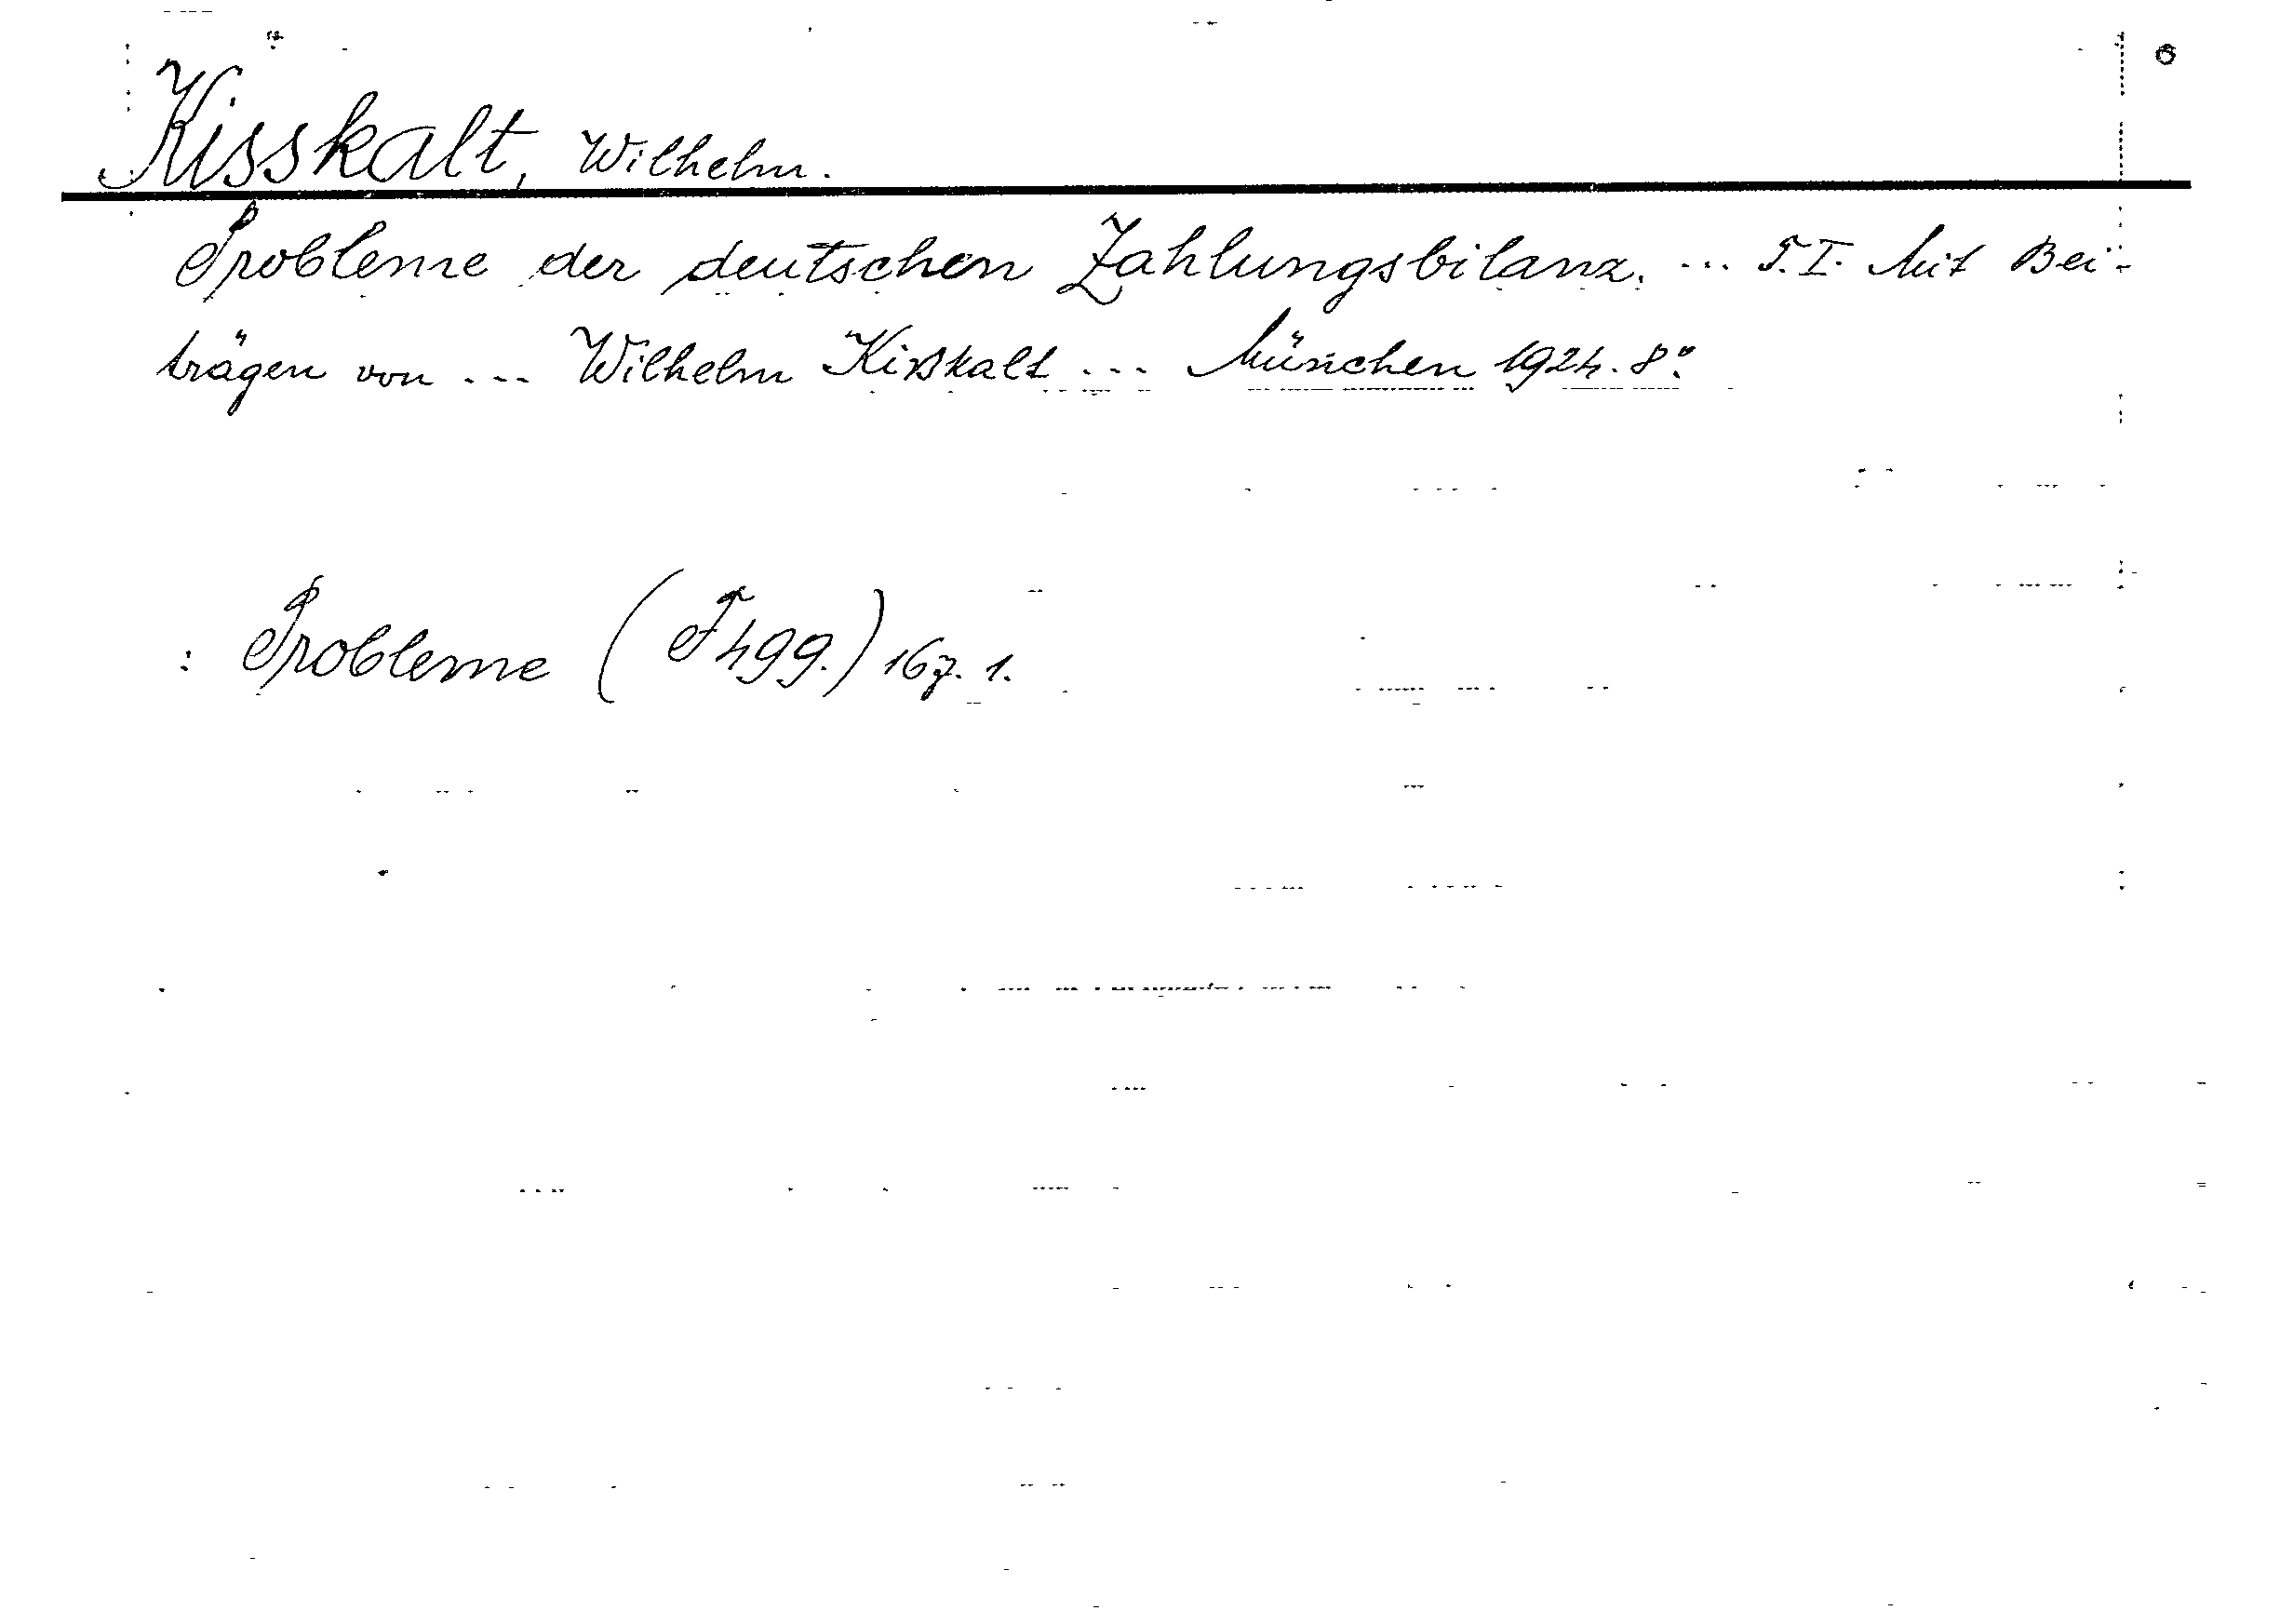 Kisskalt, Wilhelm.
Probleme der deutschen Zahlungsbilanz. ... T. I. Mit Bei-
trägen von ... Wilhelm Kißkalt ... München 1924. 8°.
: Probleme (F 499.) 167. 1.